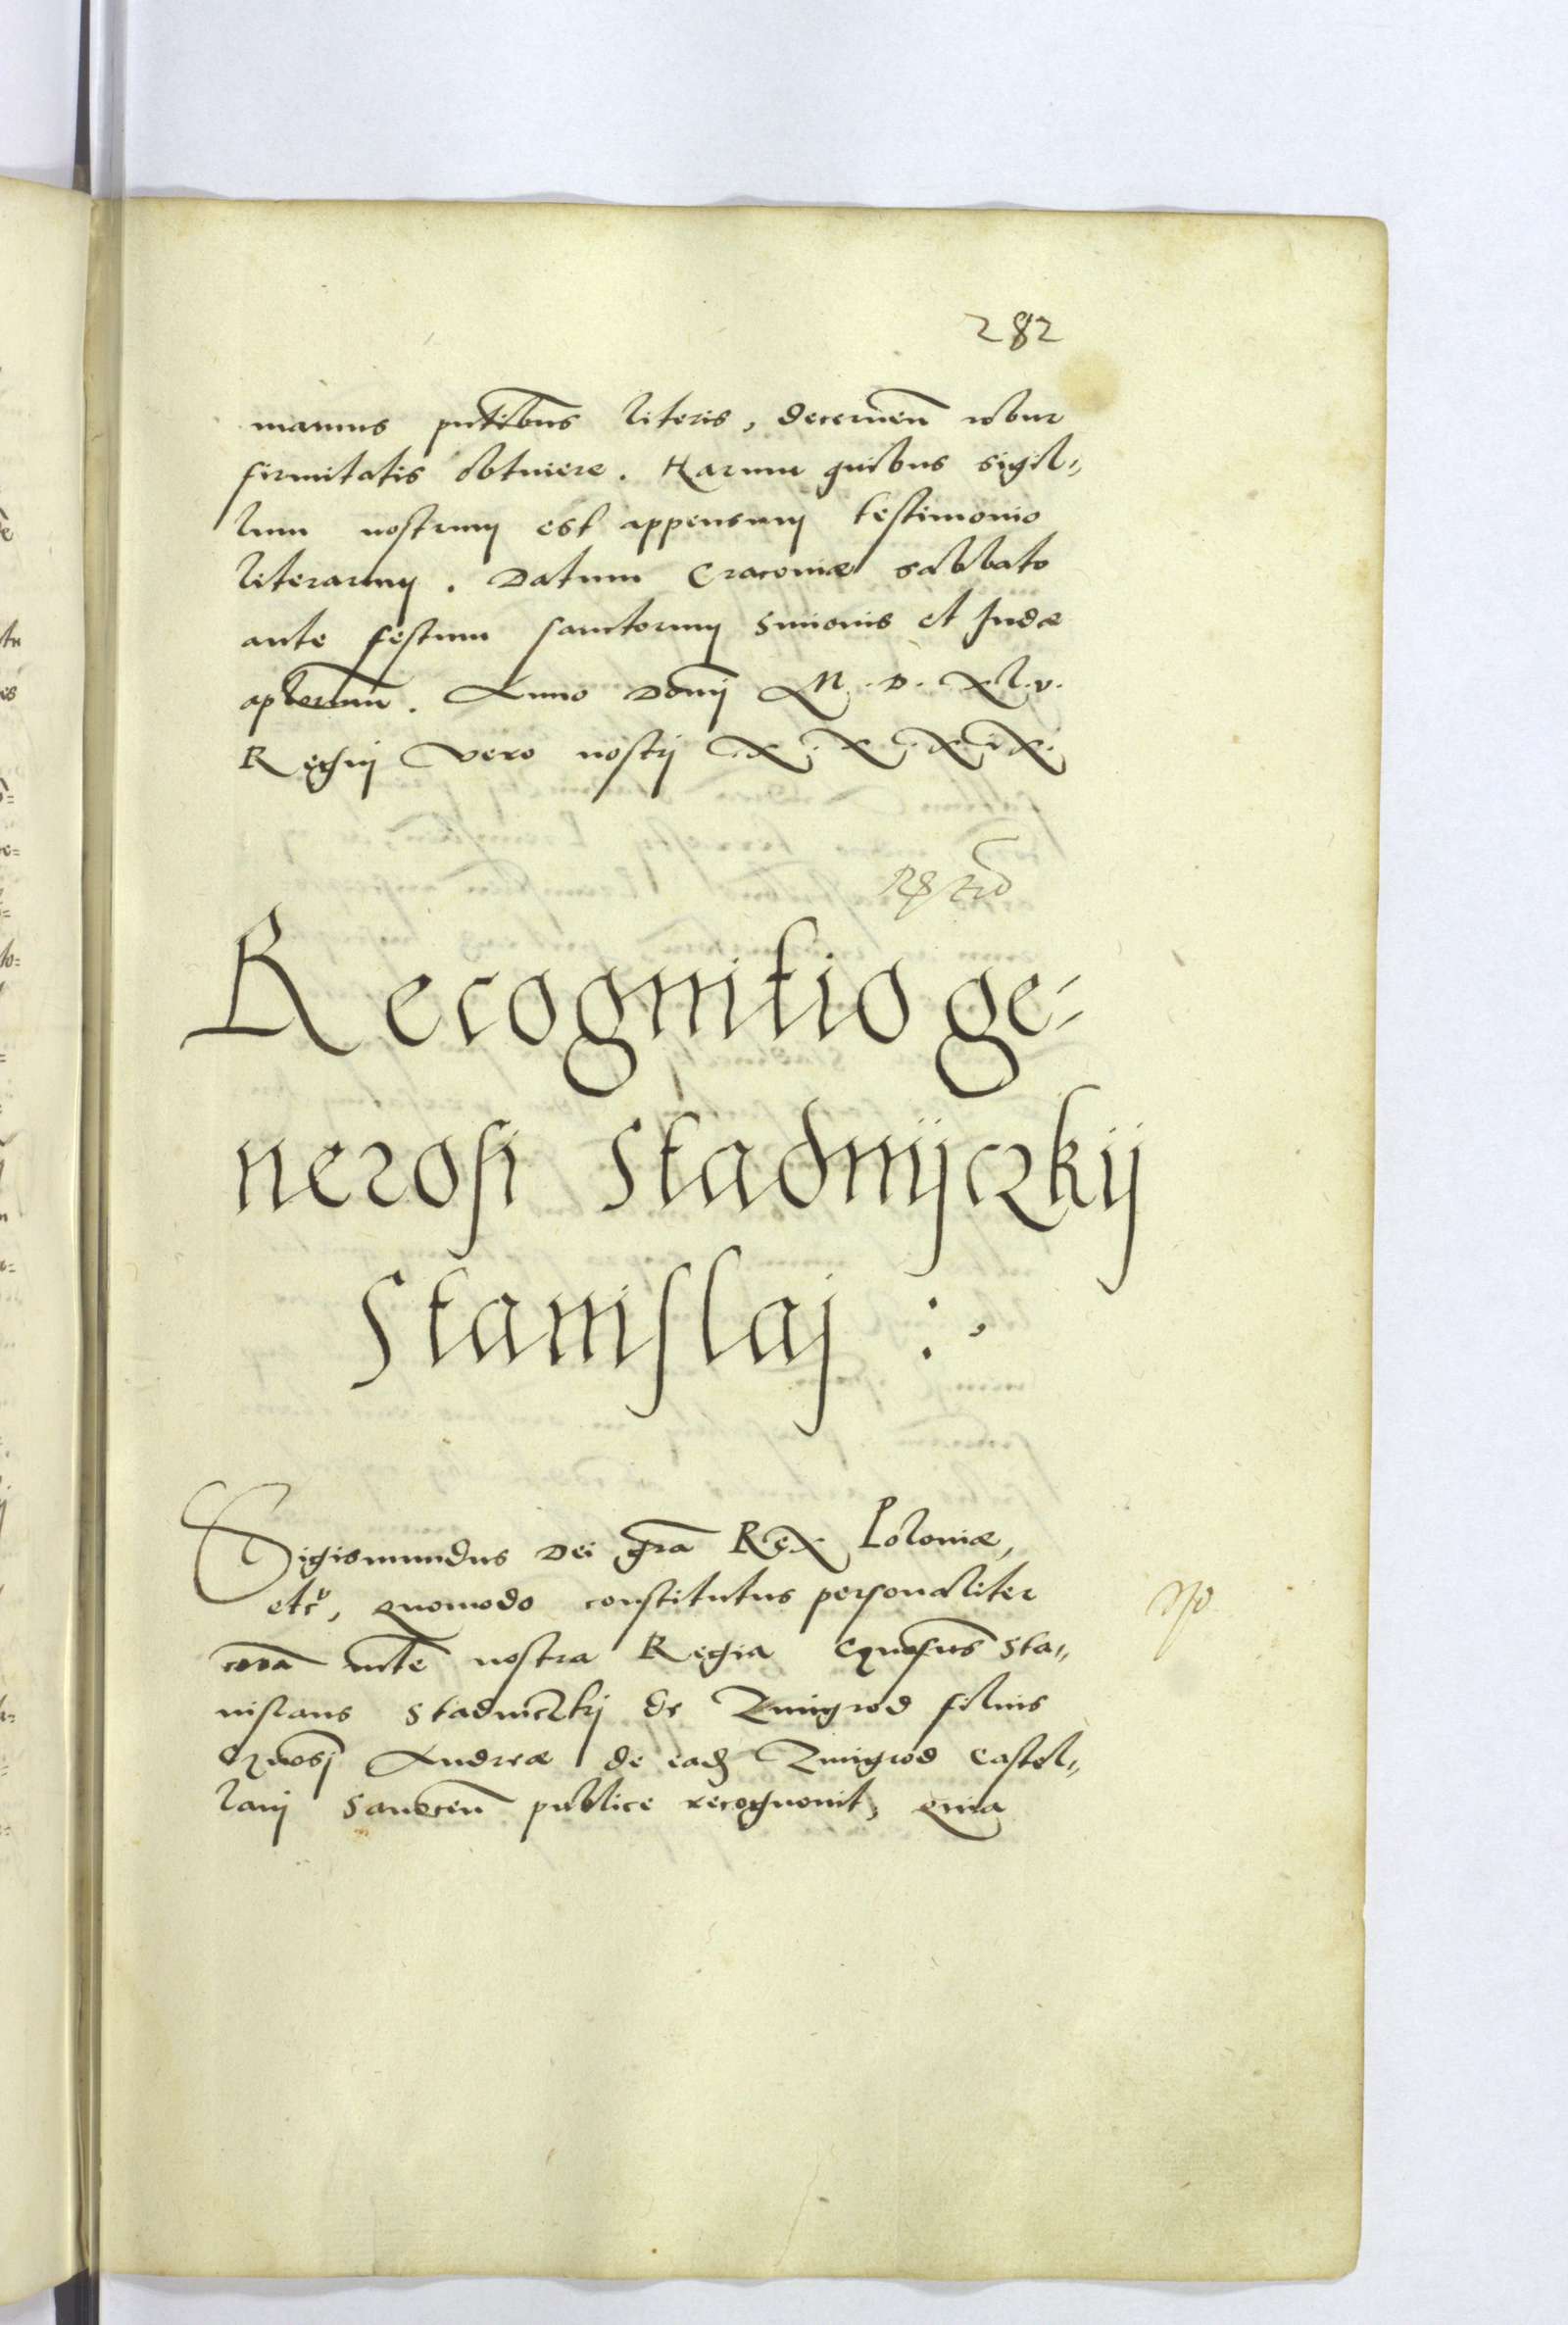 282
mamus pntibus literis, decernen robur
firmitatis obtinere. Harum quibus sigil„
lum nostrum est appensum testimonio
literarum. Datum Cracoviæ sabbato
ante festum sanctorum Simonis et Judæ
aplorum. Anno Domj M.D.XL.v.
Regnij vero nostrj X.X.X.ix.
Recognitio ge-
nerosi Stadnijczkij
Stanislaj :.
Sigismundus Dei gra Rex Poloniæ,
etc, quomodo constitutus personaliter
coram mte nostra Regia Gnosus Sta„
nislaus Stadniczkij de Zmigrod filius
Gnosj Andreæ de eadem Zmigrod Castel„
lanj Sanocen publice recognovit, quia